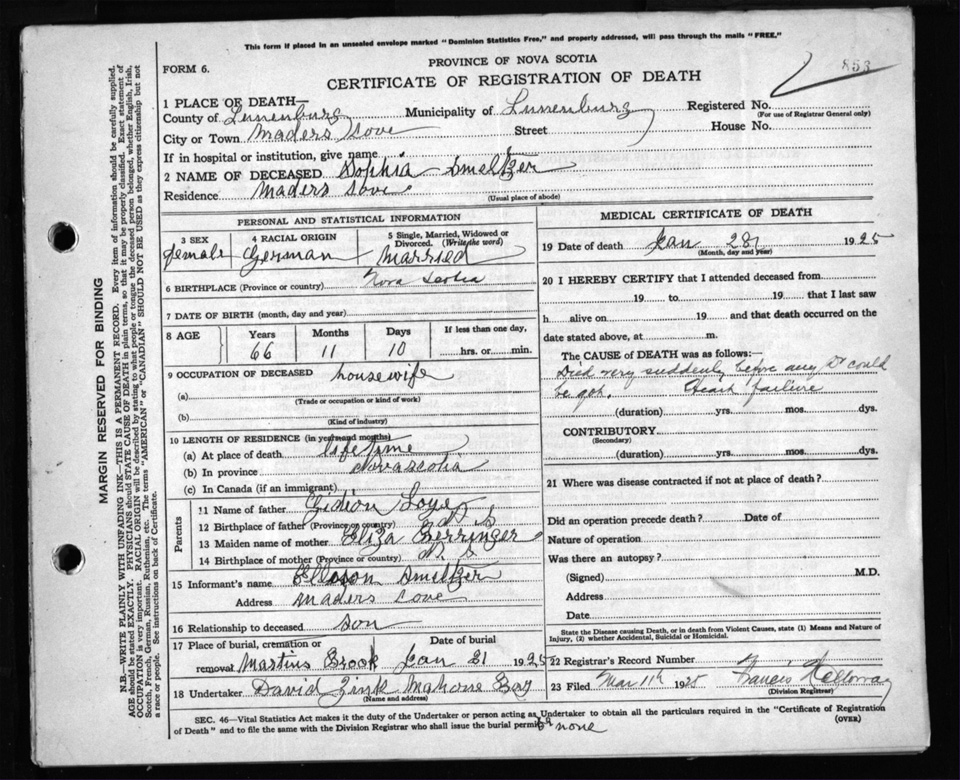 This form if placed in an unsealed envelope marked "Dominion Statistics Free," and properly addressed, will pass through the mails "FREE."
FORM 6.
PROVINCE OF NOVA SCOTIA
853
CERTIFICATE OF REGISTRATION OF DEATH
1 PLACE OF DEATH—
County of Lunenburg Municipality of Lunenburg Registered No.
(For use of Registrar General only)
City or Town Maders Cove Street House No.
If in hospital or institution, give name
2 NAME OF DECEASED Sophia Smeltzer
Residence Maders Cove
(Usual place of abode)
PERSONAL AND STATISTICAL INFORMATION
3 SEX 4 RACIAL ORIGIN 5 Single, Married, Widowed or Divorced. (Write the word)
female German Married
6 BIRTHPLACE (Province or country) Nova Scotia
7 DATE OF BIRTH (month, day and year)
8 AGE Years Months Days If less than one day,
66 11 10 hrs. or min.
9 OCCUPATION OF DECEASED housewife
(a)
(Trade or occupation or kind of work)
(b)
(Kind of industry)
10 LENGTH OF RESIDENCE (in years and months)
(a) At place of death lifetime
(b) In province Novascotia
(c) In Canada (if an immigrant)
Parents
11 Name of father Gidion
12 Birthplace of father (Province or country) N S
13 Maiden name of mother Eliza
14 Birthplace of mother (Province or country) N. S
15 Informant's name Smeltzer
Address Maders Cove
16 Relationship to deceased son
17 Place of burial, cremation or removal Martins Brook Date of burial Jan 31 1925
18 Undertaker David Zink Mahone Bay
(Name and address)
MEDICAL CERTIFICATE OF DEATH
19 Date of death Jan 28 1925
(Month, day and year)
20 I HEREBY CERTIFY that I attended deceased from
19 to 19 that I last saw
h alive on 19 and that death occurred on
date stated above, at m.
The CAUSE of DEATH was as follows:—
Died very suddenly before any Dr could
be got. Heart failure
(duration) yrs. mos. dys.
CONTRIBUTORY
(Secondary)
(duration) yrs. mos. dys.
21 Where was disease contracted if not at place of death?
Did an operation precede death? Date of
Nature of operation
Was there an autopsy?
(Signed) M.D.
Address
Date
State the Disease causing Death, or in death from Violent Causes, state (1) Means and Nature of
Injury, (2) whether Accidental, Suicidal or Homicidal.
22 Registrar's Record Number
23 Filed Mar 11th 1925 Francis
(Division Registrar)
SEC. 46—Vital Statistics Act makes it the duty of the Undertaker or person acting as Undertaker to obtain all the particulars required in the "Certificate of Registration
of Death" and to file the same with the Division Registrar who shall issue the burial permit. none
(OVER)
MARGIN RESERVED FOR BINDING
N.B.—WRITE PLAINLY WITH UNFADING INK—THIS IS A PERMANENT RECORD. Every item of information should be carefully supplied.
AGE should be stated EXACTLY. PHYSICIANS should STATE CAUSE OF DEATH in plain terms, so that it may be properly classified. Exact statement of
OCCUPATION is very important. RACIAL ORIGIN will be described by stating to what people or tongue the deceased person belonged, whether English, Irish,
Scotch, French, German, Russian, Ruthenian, etc. The terms "AMERICAN" or "CANADIAN" SHOULD NOT BE USED as they express citizenship but not
a race or people. See instructions on back of Certificate.